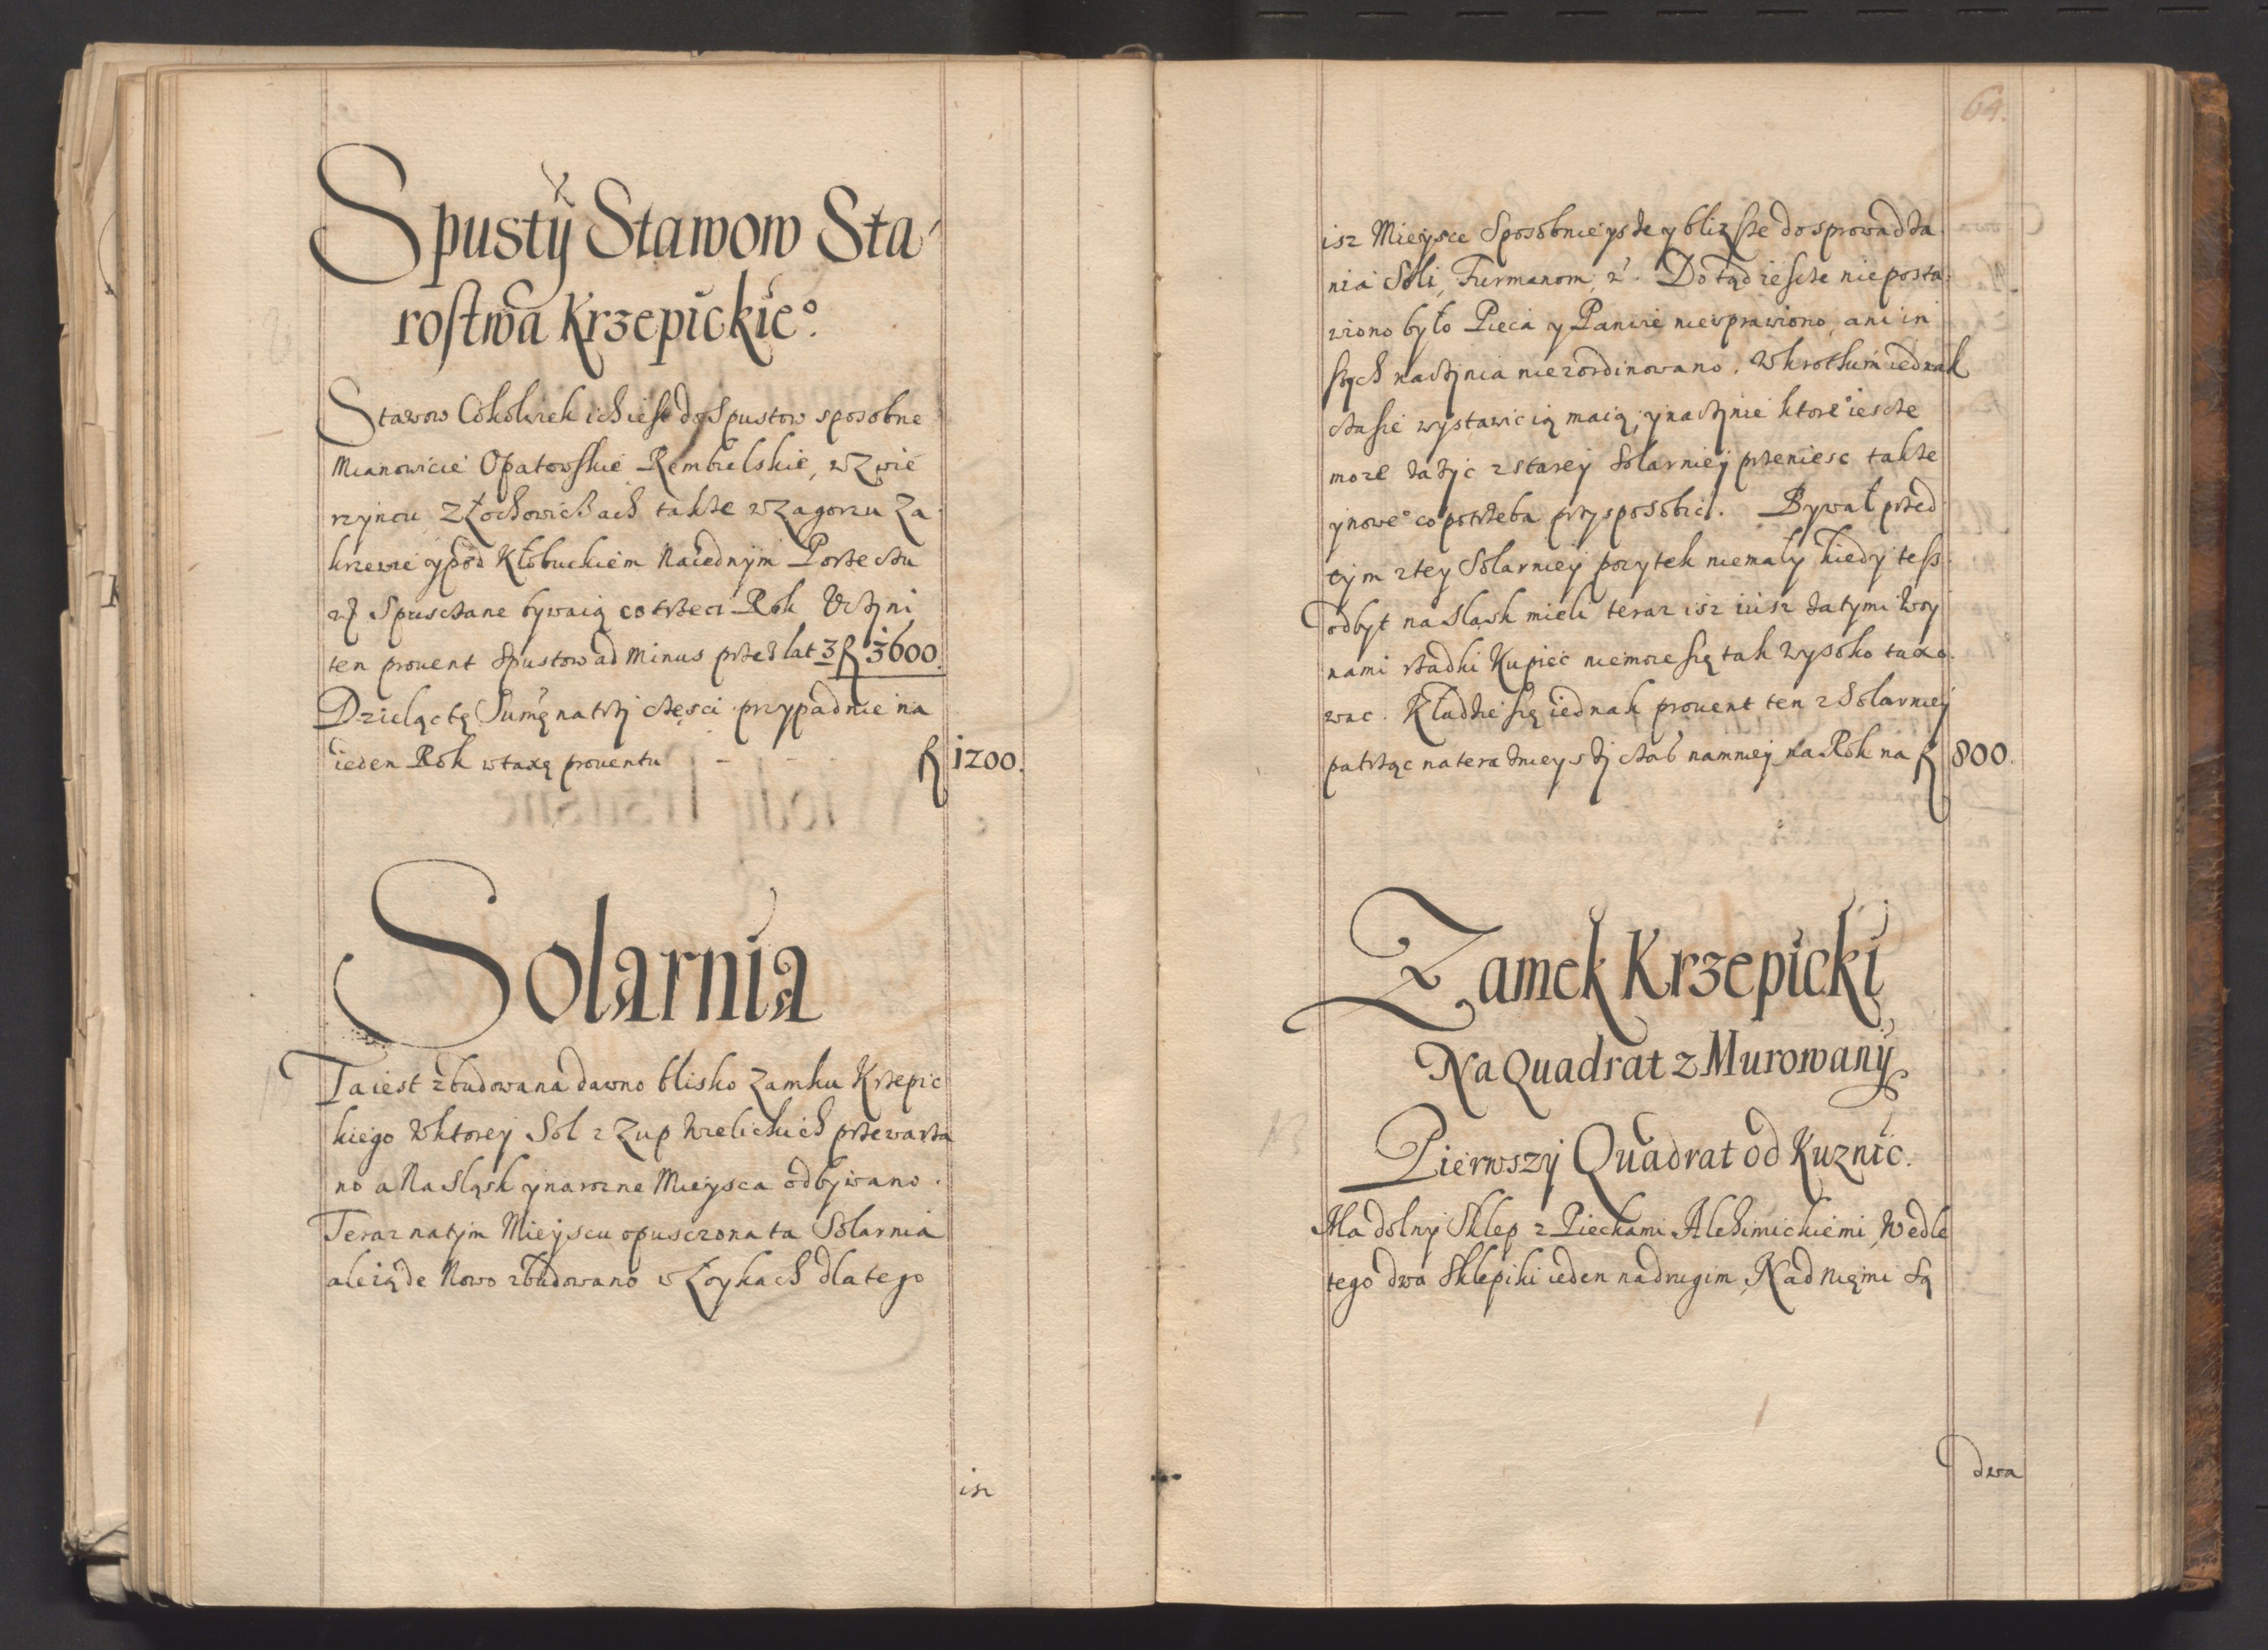 Spusty Stawow Sta
rostwa Krzepickie°.
Stawow Cokolwiek ich iest do Spustow sposobne
Mianowicie Opatowskie Rembielskie, w Zwie
rzyncu Złochowicach także w Zagorzu Za
krzewie y pod Kłobuckiem Na iednym Porzeczu
Spusczane bywaią co trzeci Rok Vczyni
ten prouent Spustow ad Minus przez lat 3 f 3600.
Dzieląc tę Sumę na trzy częsci przypadnie na
ieden Rok w taxę prouentu - - - f 1200.
Solarnia
Ta iest zbudowana dawno blisko Zamku Krzepic
kiego w ktorey Sol z Zup Wielickich przewarza
no a Na Sląsk y na rozne Mieysca odbywano.
Teraz na tym Mieyscu opusczona ta Solarnia
ale ią de Novo zbudowano w Łoykach dlatego
isz
64.
isz Mieysce Sposobnieysze y blizsze do sprowadza
nia Soli, Furmanom, Do tąd iescze nie posta
wiono było Pieca y Panwie nie sprawiono, ani in
szych naczynia nie zordinowano. W krotkim iednak
czasie wystawic ią maią, y naczynie ktore iescze
może zażyc z starey Solarniey przeniesc także
y nowe° co potrzeba przysposobic. Bywał przed
tym z tey Solarniey pozytek niemały kiedy tesz
odbyt na Sląsk mieli teraz isz iusz za tymi Woy
nami rzadki Kupiec nie może się tak wysoko taxo
wac. Kładzie się iednak prouent ten z Solarniey
patrząc na teraznieyszy czas namniey na Rok na f 800.
Zamek Krzepicki
Na Quadrat z Murowany
Pierwszy Quadrat od Kuznic.
Ma dolny Sklep z Pieckami Alchimickiemi, Wedle
tego dwa Sklepiki ieden na drugim, Nad Nięmi są
dwa